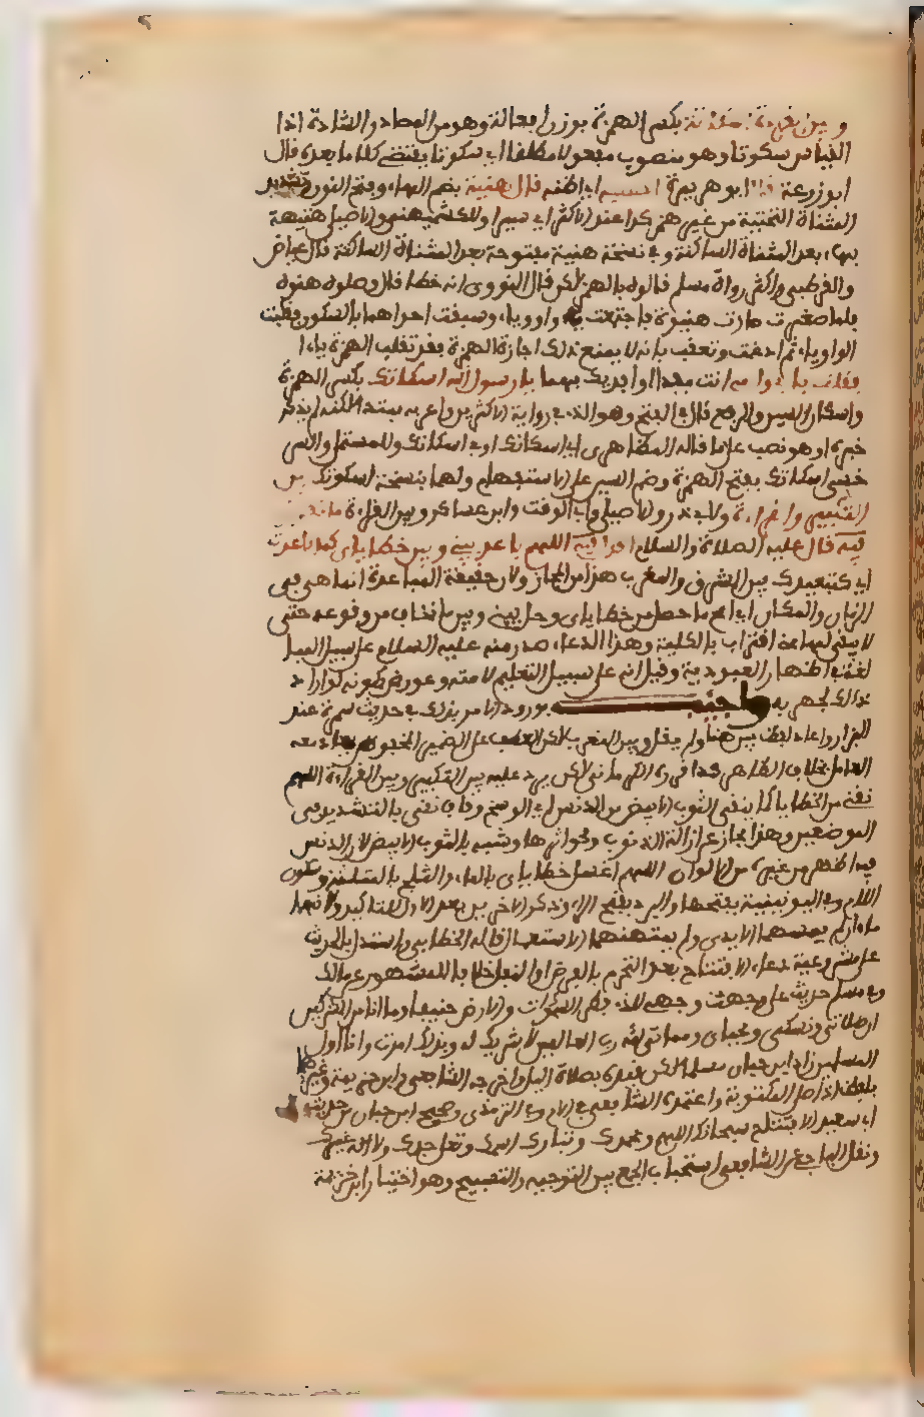 وبين القراءة اسكاتة بكسر الهمزة بوزن افعالة وهو من المصادر الشاذة اذا
القياس سكوتا وهو منصوب مفعولا مطلقا اي سكوتا يقتضي كلاما بعده قال
ابو زرعة قال ابو هريرة احسبه اي اظنه قال هنية بضم الهاء وفتح النون وتشديد
المثناة التحتية من غير همز كذا عند الاكثر اي يسيرا وللكشميهني والاصيلي هنيهة
بهاء بعد المثناة الساكنة وفي نسخة هنيئة مفتوحة بعد المثناة الساكنة قال عياض
والقرطبي واكثر رواة مسلم قالوه بالهمز لكن قال النووي انه خطأ قال واصله هنوة
فلما صغرت صارت هنيوة فاجتمعت واو وياء وسبقت احداهما بالسكون فقلبت
الواو ياء ثم ادغمت وتعقب بانه لا يمنع ذلك اجازة الهمزة فقد تقلب الهمزة ياء
فقلت بابي وامي انت مفدا او افديك بهما يا رسول الله اسكاتك بكسر الهمزة
واسكان السين والرفع قال في الفتح وهو الذي في رواية الاكثرين واعربه مبتدا لكنه لم يذكر
خبره او هو نصب على ما قاله المظهري اي اسالك اسكاتك او في اسكاتك وللمستملي والسر
خسي اسكاتك بفتح الهمزة وضم السين على الاستفهام ولهما بنسخة اسكوتك بين
التكبير والقراءة ولابي ذر والاصيلي وابي الوقت وابن عساكر وبين القراءة ما تقول
فيه قال عليه الصلاة والسلام اقول فيه اللهم باعد بيني وبين خطاياي كما باعدت
اي كتبعيدك بين المشرق والمغرب هذا من المجاز لان حقيقة المباعدة انما هي في
الزمان والمكان اي امح ما حصل من خطاياي وحل بيني وبين ما تخاف من وقوعه حتى
لا يبقى لها مني اقتراب بالكلية وهذا الدعاء صدر منه عليه السلام على سبيل المبا
لغة في اظهار العبودية وقيل انه على سبيل التعليم لامته وعورض بكونه لو اراد
ذلك لجهر به واجيب بورود الامر بذلك في حديث سمرة عند
البزار واعاد لفظ بين هنا ولم يقل وبين المغرب لان العطف على الضمير المخفوض يعاد معه
العامل بخلاف الظاهر كذا قرره الكرماني لكن يرد عليه بين التكبير وبين القراءة اللهم
نقني من الخطايا كما ينقى الثوب الابيض من الدنس اي الوسخ وقاف نقني بالتشديد في
الموضعين وهذا مجاز عن ازالة الذنوب ومحو اثرها وشبه بالثوب الابيض لان الدنس
فيه اظهر من غيره من الالوان اللهم اغسل خطاياي بالماء والثلج بالمثلثة وسكون
اللام وفي اليونينية بفتحها والبرد بفتح الراء وذكر الاخيرين بعد الاول للتاكيد ولانهما
ماءان لم يمسهما الايدي ولم يمتهنهما الاستعمال قاله الخطابي واستدل بالحديث
على مشروعية دعاء الافتتاح بعد التحرم بالفرض او النفل خلافا للمشهور عن مالك
وفي مسلم حديث علي وجهت وجهي للذي فطر السموات والارض حنيفا وما انا من المشركين
ان صلاتي ونسكي ومحياي ومماتي لله رب العالمين لا شريك له وبذلك امرت وانا اول
المسلمين زاد ابن حبان مسلما لكن قيده بصلاة الليل واخرجه الشافعي وابن خزيمة وغيرهما
بلفظ اذا صلى المكتوبة واعتمده الشافعي في الام وفي الترمذي وصحيح ابن حبان من حديث
ابي سعيد الافتتاح سبحانك اللهم وبحمدك وتبارك اسمك وتعالى جدك ولا اله غيرك
ونقل الساجي عن الشافعي استحباب الجمع بين التوجيه والتسبيح وهو اختيار ابن خزيمة